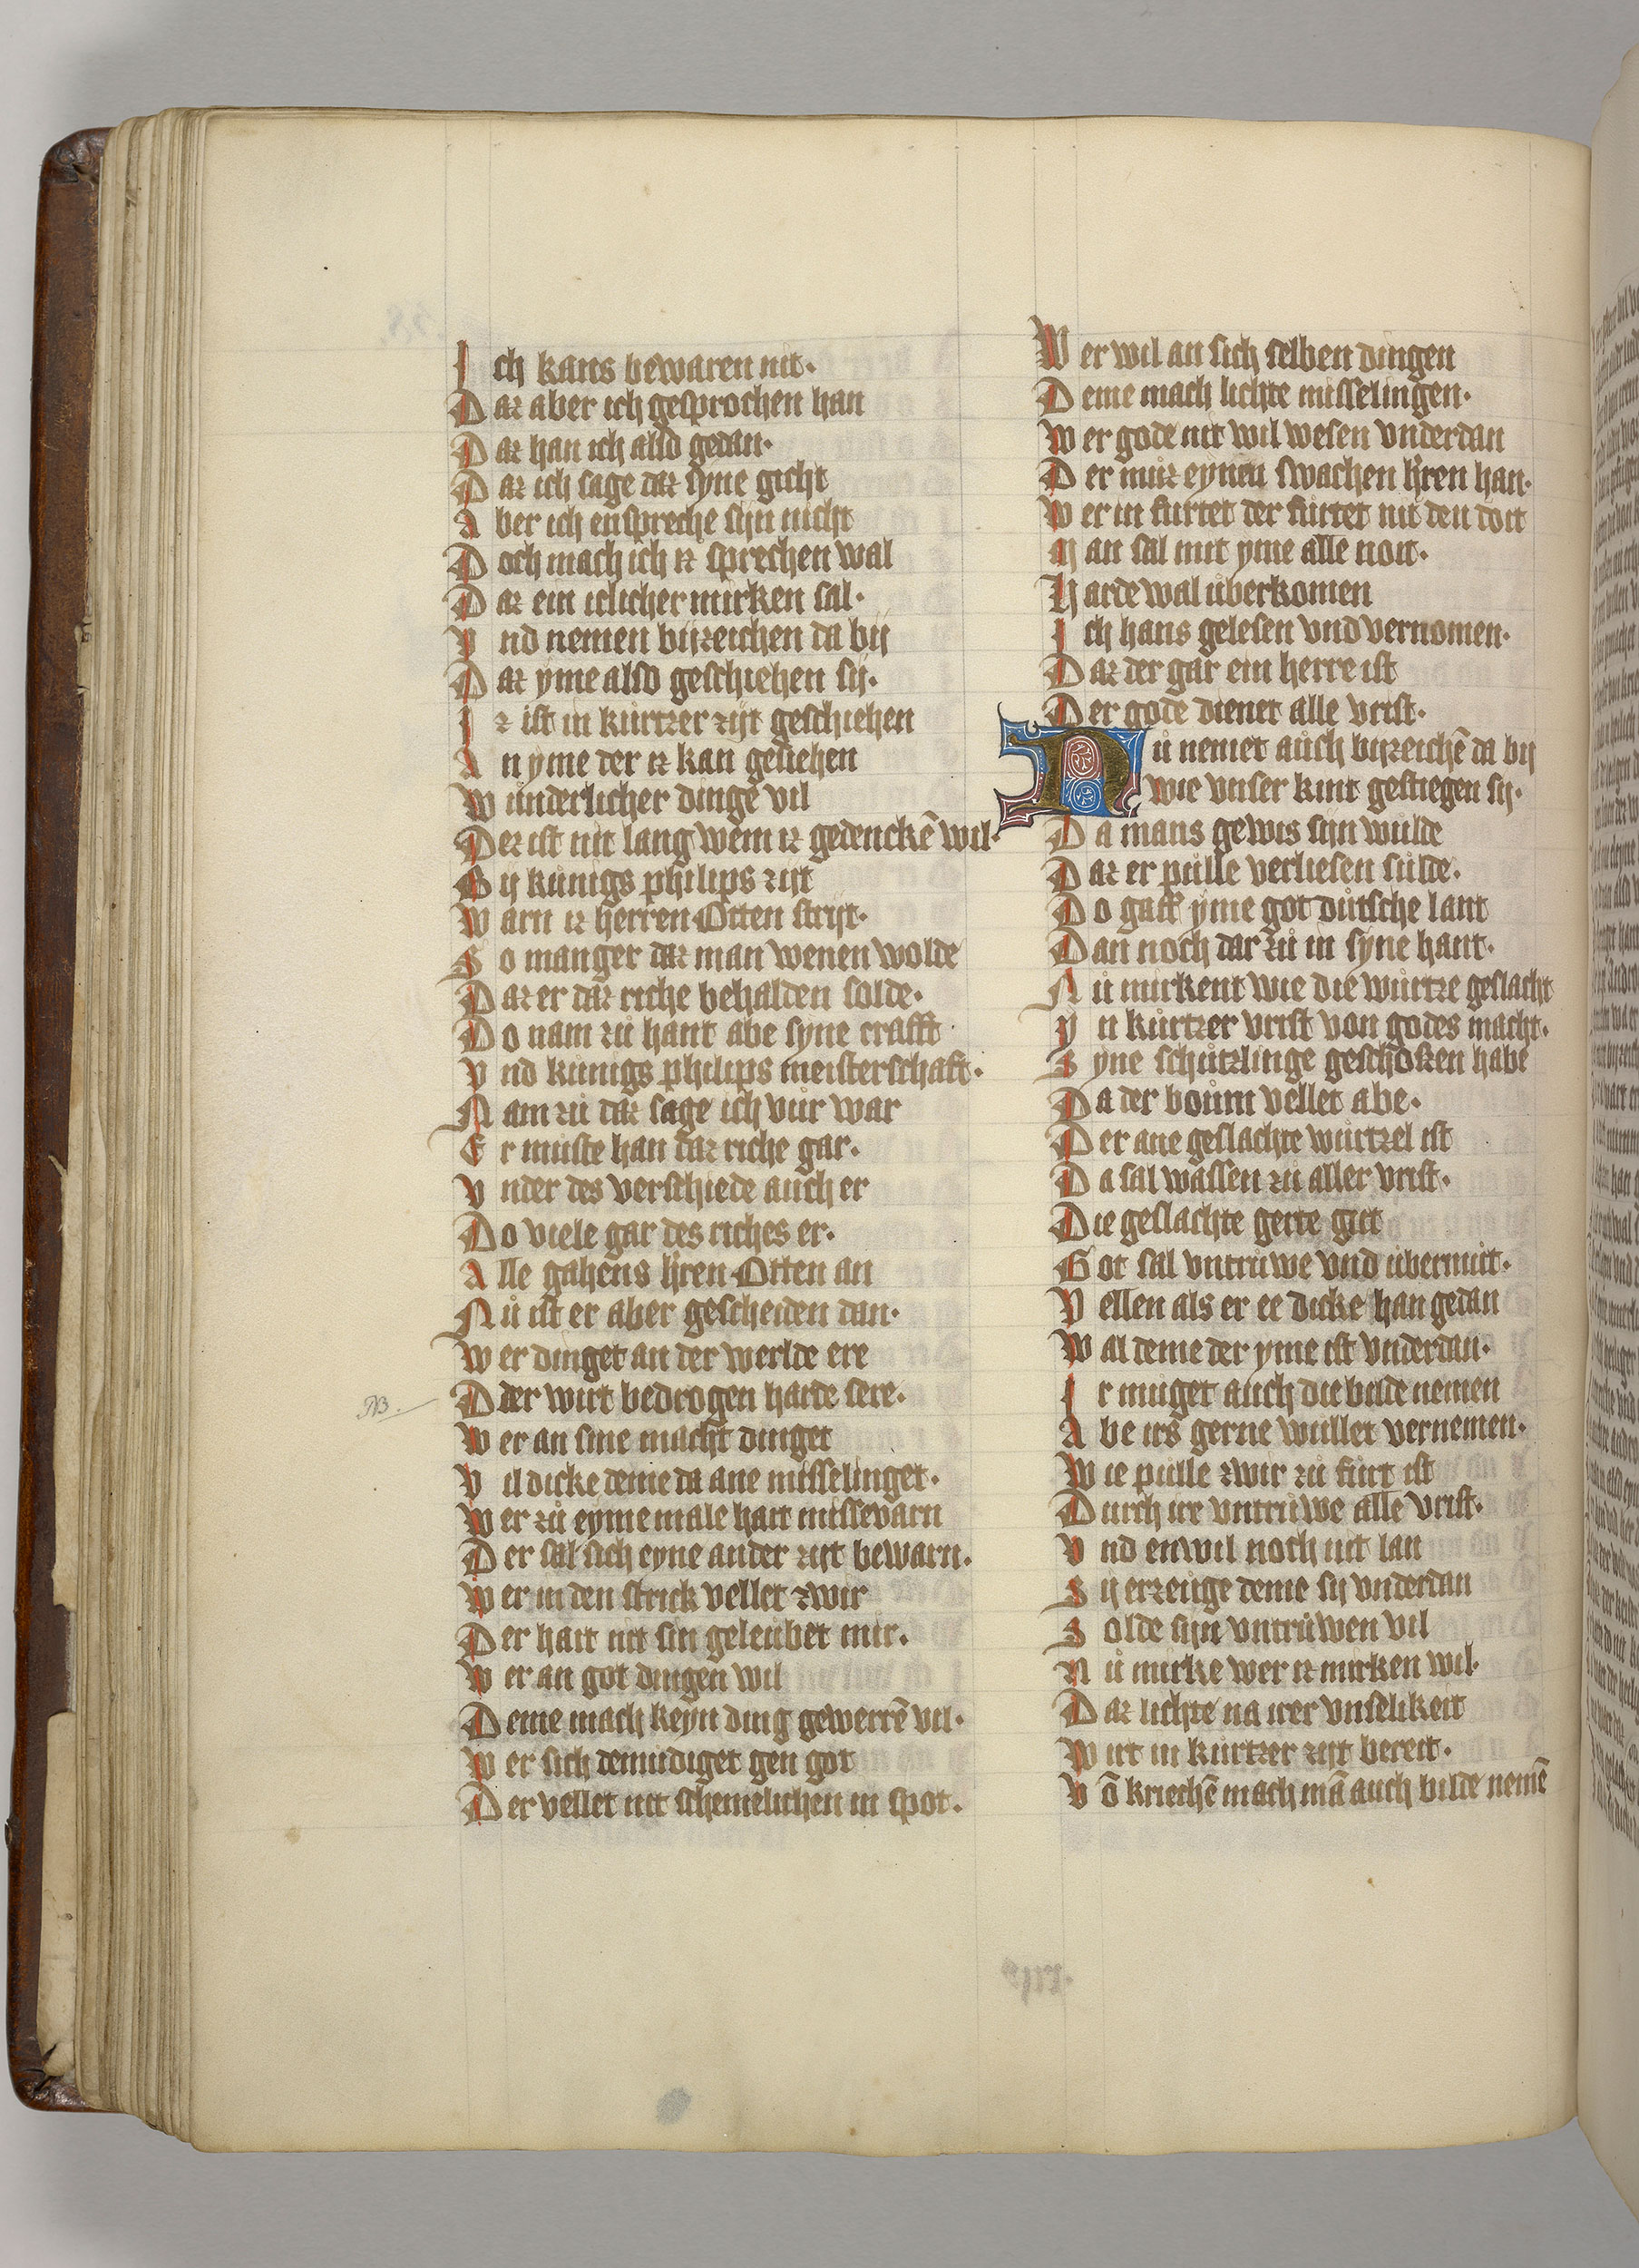 J ch kans bewaren nit·
D az aber ich gesprochen han
D az han ich also gedan·
D az ich sage daz syne gicht
A ber ich enspreche sijn nicht
D och mach ich iz sprechen wal
D az ein iclicher mirken sal·
V nd nemen bijzeichen da bij
D az yme also geschiehen sij·
J z ist in kůrtzer zijt geschiehen
A n yme der iz kan gesiehen
W ůnderlicher dinge vil
D ez ist nit lang wem iz gedenckē wil·
B ij kůnigs philips zijt
W arn iz herren Otten strijt·
S o manger daz man wenen wolde
D az er daz riche behalden solde·
D o nam zů hant abe syne crafft
V nd kůnigs philips meisterschaft·
N am zů daz sage ich vůr war
E r můste han daz riche gar·
V nder des verschiede auch er
D o viele gar des riches er·
A lle gahens h̄ren Otten an
N ů ist er aber gescheiden dan·
W er dinget an der werlde ere
D der wirt bedrogen harde sere·
NB.
W er an sine macht dinget
V il dicke deme da ane misselinget·
W er zů eyme male hait missevarn
D er sal sich eyne ander zijt bewarn·
W er in den strick vellet zwir
D er hait nit sin geleubet mir·
W er an got dingen wil
D eme mach keyn ding gewerrē vil·
W er sich demůdiget gen got
D er vellet nit schemelichen in spot·
W er wil an sich selben dingen
D eme mach lichte misselingen·
W er gode nit wil wesen vnderdan
D er můz eynen swachen h̄ren han·
W er in fůrtet der fůrtet nit den doit
M an sal mit yme alle noit·
H arde wal ůberkomen
J ch hans gelesen vnd vernomen·
D az der gar ein herre ist
D er gode dienet alle vrist·
N ů nemet auch bijzeichē da bij
wie vnser kint gestiegen sij·
D a mans gewis sijn wůlde
D az er půlle verliesen sůlde·
D o gaff yme got důtsche lant
D an noch dar zů in syne hant·
N ů mirkent wie die wůrtze geslacht
Y n kůrtzer vrist von godes macht·
S yne schůtzlinge geschoszen habe
D a der boům vellet abe·
D er ane geslachte wůrtzel ist
D a sal wassen zů aller vrist·
D ie geslachte gerte gůt
G ot sal vntrůwe vnd ůbermůt·
V ellen als er ee dicke han gedan
W al deme der yme ist vnderdan·
J r můget auch die bilde nemen
A be irs gerne wůllet vernemen·
W ie pulle zwir zů fůrt ist
D urch ire vntrůwe alle vrist·
V nd enwil noch nit lan
S ij erzeuge deme sij vnderdan
S olde sijn vntrůwen vil
N ů mirke wer iz mirken wil·
D az lichte na irer vnselikeit
W irt in kůrtzer zijt bereit·
V ō kriechē mach mā auch bilde nemē